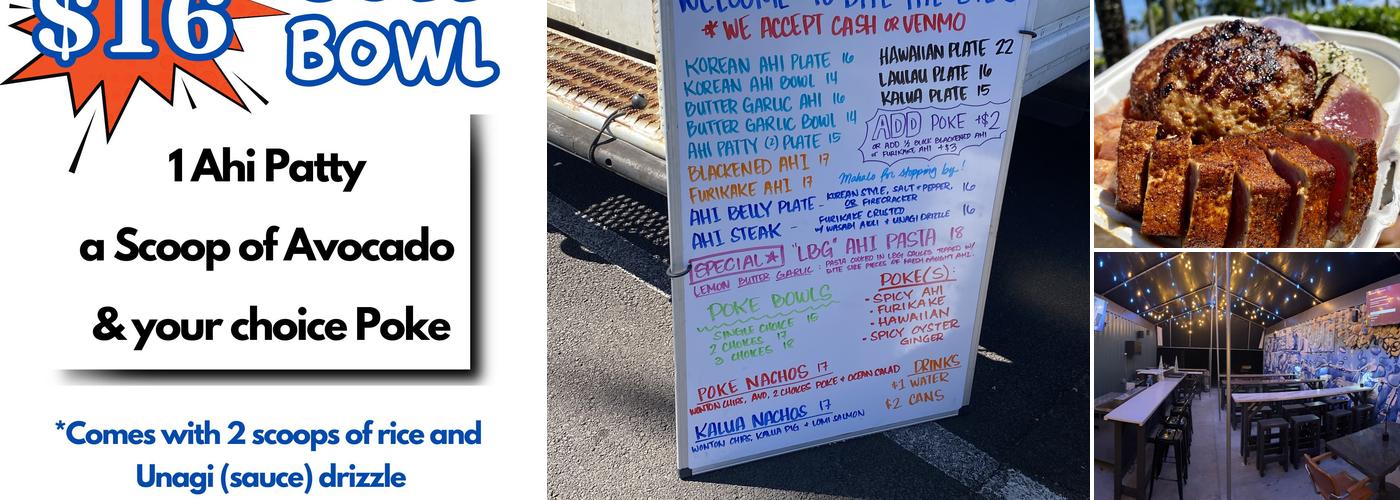 $16
BOWL
1 Ahi Patty
a Scoop of Avocado
& your choice Poke
*Comes with 2 scoops of rice and
Unagi (sauce) drizzle
WELCOME TO BITE THE
* WE ACCEPT CASH OR VENMO
KOREAN AHI PLATE 16
KOREAN AHI BOWL 14
BUTTER GARLIC AHI 16
BUTTER GARLIC BOWL 14
AHI PATTY (2) PLATE 15
BLACKENED AHI 17
FURIKAKE AHI 17
HAWAIIAN PLATE 22
LAULAU PLATE 16
KALUA PLATE 15
ADD POKE +$2
OR ADD 1/2 BLOCK BLACKENED AHI
OR FURIKAKE AHI +$3
Mahalo for stopping by!
AHI BELLY PLATE - KOREAN STYLE, SALT + PEPPER, 16
OR FIRECRACKER
AHI STEAK - FURIKAKE CRUSTED 16
W/ WASABI AIOLI + UNAGI DRIZZLE
SPECIAL* "LBG" AHI PASTA 18
LEMON BUTTER GARLIC : PASTA COOKED IN LBG SAUCES TOPPED W/
BITE SIZE PIECES OF FRESH CAUGHT AHI.
POKE BOWLS
SINGLE CHOICE 15
2 CHOICES 17
3 CHOICES 18
POKE(S):
- SPICY AHI
- FURIKAKE
- HAWAIIAN
- SPICY OYSTER
GINGER
POKE NACHOS 17
WONTON CHIPS, AVO, 2 CHOICES POKE + OCEAN SALAD
KALUA NACHOS 17
WONTON CHIPS, KALUA PIG + LOMI SALMON
DRINKS
$1 WATER
$2 CANS